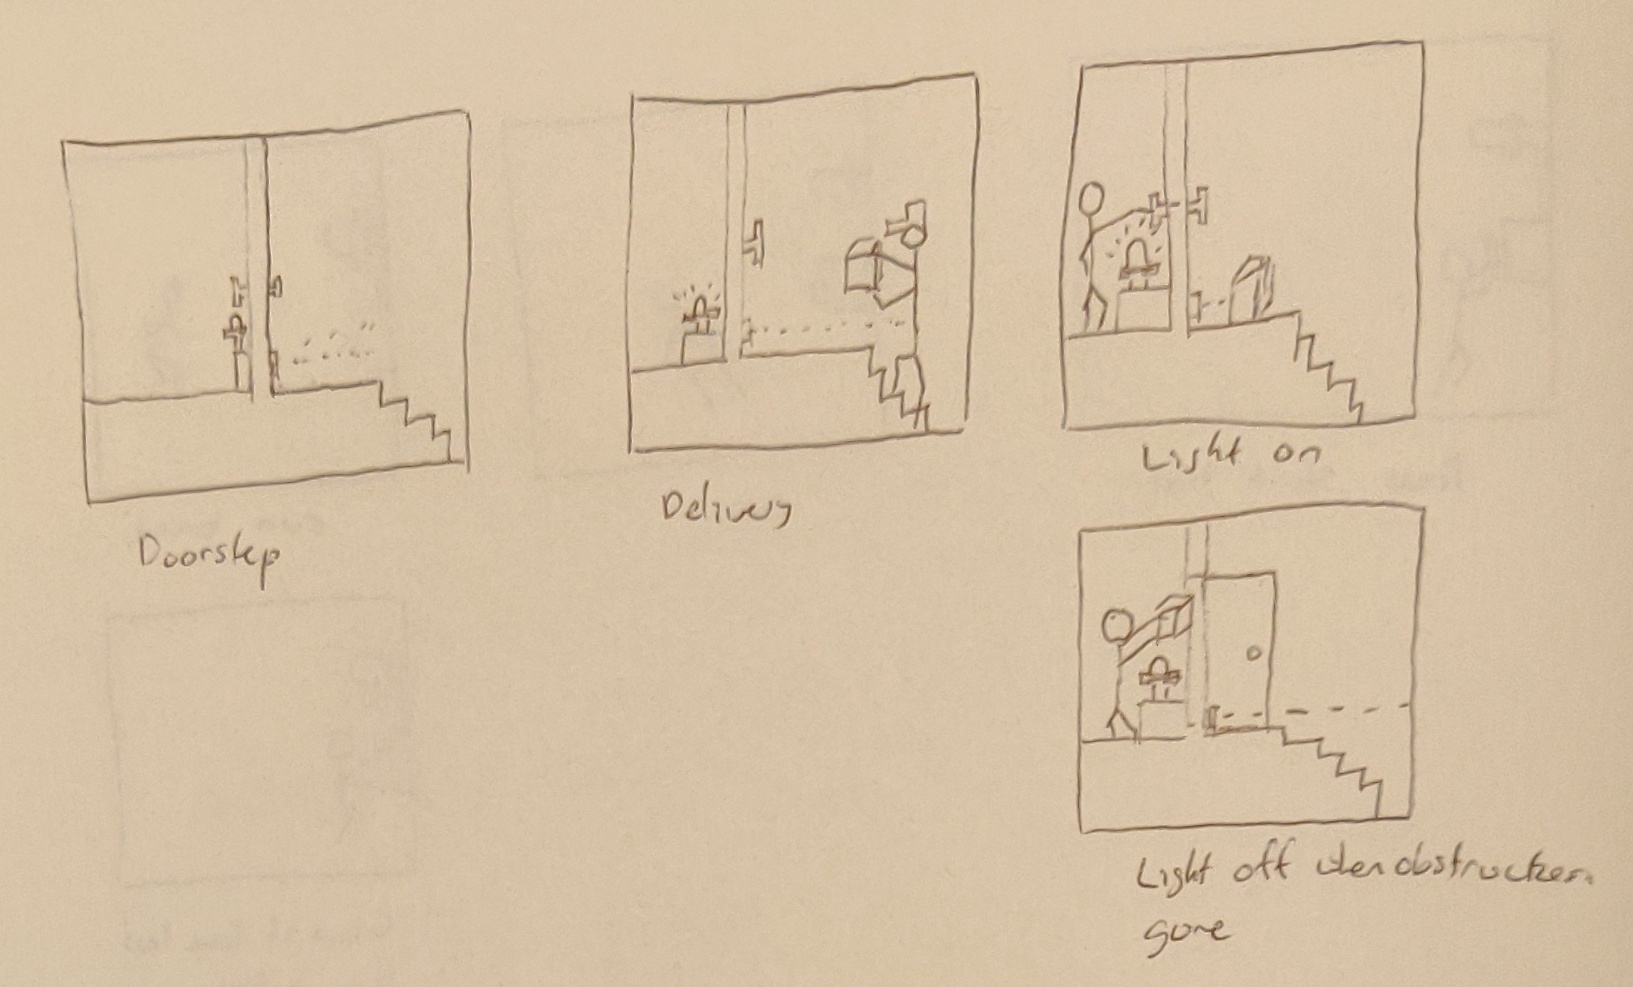 Doorstep
Delivery
Light on
Light off when obstruction
gone